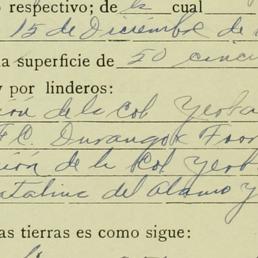 o respectivo; de la cual
15 de Diciembre de
a superficie de 50 cincu
y por linderos:
ión de la Col Yerba
F.C. Durango
ión de la Col Yerb
atalina del Alamo y
as tierras es como sigue: